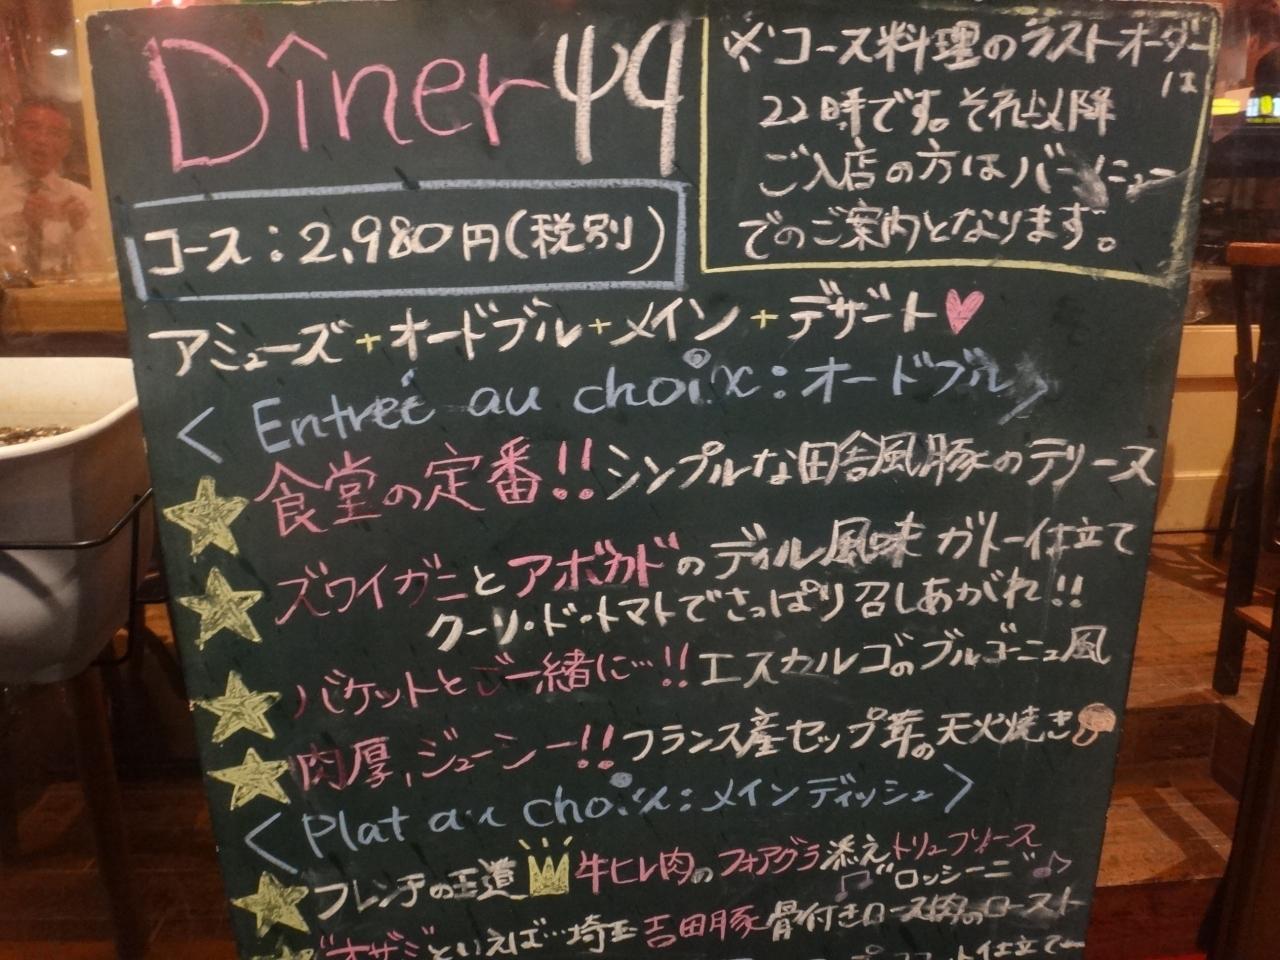 Dîner
※コース料理のラストオーダーは
22時です。それ以降
ご入店の方はバーメニュー
でのご案内となります。
コース:2,980円(税別)
アミューズ+オードブル+メイン+デザート
<Entréé au choix:オードブル>
食堂の定番!!シンプルな田舎風豚のテリーヌ
ズワイガニとアボカドのディル風味 ガトー仕立て
クーリ・ド・トマトでさっぱり召しあがれ!!
バケットとご一緒に…!!エスカルゴのブルゴーニュ風
肉厚,ジューシー!!フランス産セップ茸の天火焼き
<Plat au choix:メインディッシュ>
フレンチの王道 牛ヒレ肉のフォアグラ添えトリュフソース
"ロッシーニ"
といえば…埼玉吉田豚骨付きロース肉のロースト
仕立て